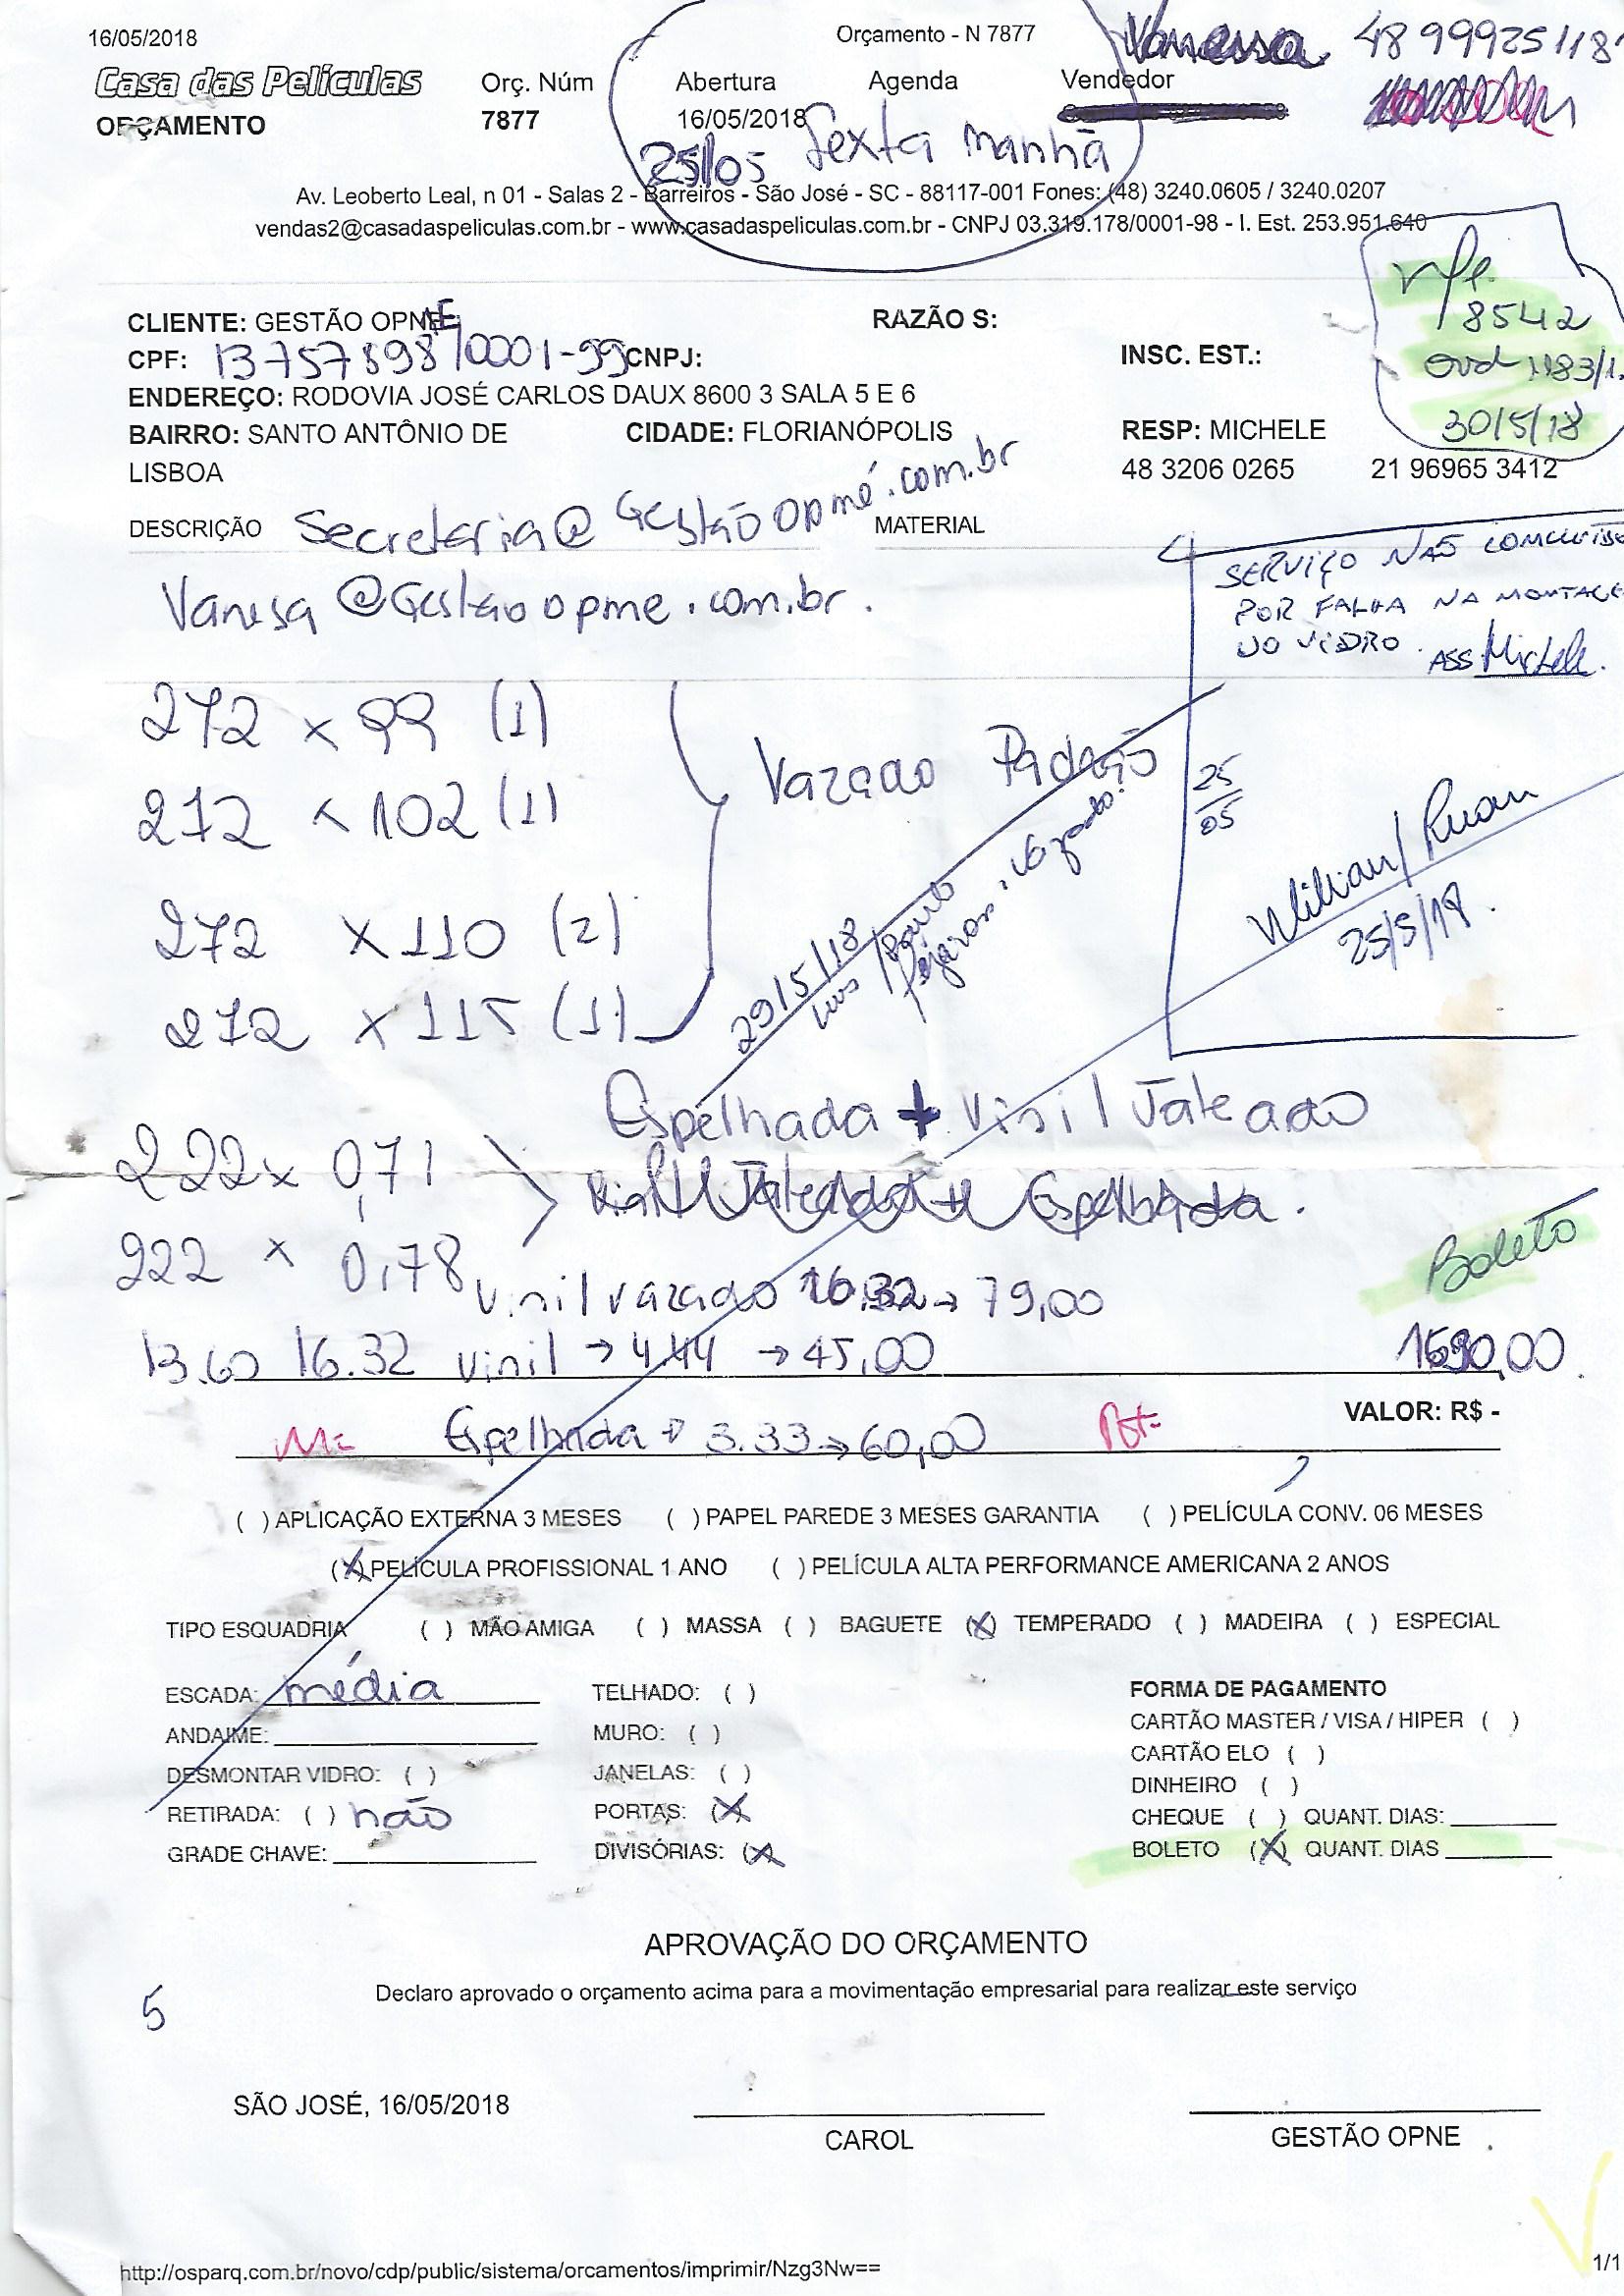 16/05/2018
Orçamento - N 7877
Vanessa 48 99925118
Casa das Películas
ORÇAMENTO
Orç. Núm
7877
Abertura
16/05/2018
Agenda
Vendedor
25/05 Sexta manhã
Av. Leoberto Leal, n 01 - Salas 2 - Barreiros - São José - SC - 88117-001 Fones: (48) 3240.0605 / 3240.0207
vendas2@casadaspeliculas.com.br - www.casadaspeliculas.com.br - CNPJ 03.319.178/0001-98 - I. Est. 253.951.640
8542
30/5/18
CLIENTE: GESTÃO OPNE
RAZÃO S:
CPF: 13757898/0001-99 CNPJ:
INSC. EST.:
ENDEREÇO: RODOVIA JOSÉ CARLOS DAUX 8600 3 SALA 5 E 6
BAIRRO: SANTO ANTÔNIO DE LISBOA
CIDADE: FLORIANÓPOLIS
RESP: MICHELE
48 3206 0265 21 96965 3412
DESCRIÇÃO
MATERIAL
Secretaria@Gestãoopme.com.br
Vanesa@Gestãoopme.com.br.
SERVIÇO NÃO CONCLUISO
POR FALHA NA MONTAGE
NO VIDRO. ASS Michele.
272 x 99 (1)
272 x 102 (1)
272 x 110 (2)
272 x 115 (1)
Vazado Padrão
25/05
Willian/Ruan
25/5/18.
29/5/18
Espelhada + Vinil Jateado
222 x 0,71
Vinil Jateado + Espelhada.
222 x 0,78
Boleto
Vinil vazado 16.32 → 79,00
13.60 16.32 vinil → 4.44 → 45,00
VALOR: R$ -
Espelhada → 3.33 → 60,00
( ) APLICAÇÃO EXTERNA 3 MESES ( ) PAPEL PAREDE 3 MESES GARANTIA ( ) PELÍCULA CONV. 06 MESES
(X) PELÍCULA PROFISSIONAL 1 ANO ( ) PELÍCULA ALTA PERFORMANCE AMERICANA 2 ANOS
TIPO ESQUADRIA ( ) MÃO AMIGA ( ) MASSA ( ) BAGUETE (X) TEMPERADO ( ) MADEIRA ( ) ESPECIAL
ESCADA: média
ANDAIME:
DESMONTAR VIDRO: ( )
RETIRADA: ( ) não
GRADE CHAVE:
TELHADO: ( )
MURO: ( )
JANELAS: ( )
PORTAS: (X)
DIVISÓRIAS: (X)
FORMA DE PAGAMENTO
CARTÃO MASTER / VISA / HIPER ( )
CARTÃO ELO ( )
DINHEIRO ( )
CHEQUE ( ) QUANT. DIAS:
BOLETO (X) QUANT. DIAS
APROVAÇÃO DO ORÇAMENTO
Declaro aprovado o orçamento acima para a movimentação empresarial para realizar este serviço
5
SÃO JOSÉ, 16/05/2018
CAROL
GESTÃO OPNE
http://osparq.com.br/novo/cdp/public/sistema/orcamentos/imprimir/Nzg3Nw==
1/1